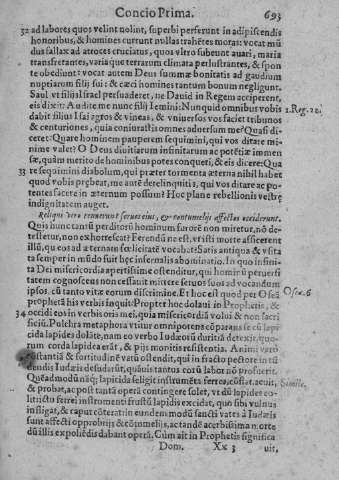 Concio Prima. 693
32 ad labores quos velint nolint, superbi perferunt in adipiscendis
honoribus, & homines currunt nullas trahẽtes moras: vocat mũ
dus fallax ad atroces cruciatus, quos vltro subeunt auari, maria
transfretantes, varia que terrarum climata perlustrantes, & spon
te obediunt: vocat autem Deus summæ bonitatis ad gaudium
nuptiarum filij sui: & cæci homines tantum bonum negligunt.
Saul vt filijs Israel persuaderet, ne Dauid in Regem acciperent,
eis dixit: Audite me nunc filij Iemini: Nunquid omnibus vobis
1. Reg. 22.
dabit filius Isai agros & vineas, & vniuersos vos faciet tribunos
& centuriones, quia coniurastis omnes aduersum me? Quasi di-
ceret: Quare hominem pauperem sequimini, qui vos ditare mi-
nime valet? O Deus diuitiarum infinitarum ac potẽtiæ immen
sæ, quàm merito de hominibus potes conqueri, & eis dicere: Qua
33 re sequimini diabolum, qui præter tormenta æterna nihil habet
quod vobis præbeat, me autẽ derelinquitis, qui vos ditare ac po-
tentes facere in æternum possum? Hoc plane rebellionis vestræ
indignitatem auget.
Reliqui vero tenuerunt seruos eius, & contumelijs affectos occiderunt.
Quis hunc tantũ perditorũ hominum furorẽ non miretur, nõ de-
testetur, non exhorrescat? Ferendũ ne est, vt isti morte afficerent
illũ, qui eos ad æternam fœlicitatẽ vocabat? Satis antiqua & vsita
ta semper in mũdo fuit hęc infernalis abominatio. In quo infini-
ta Dei misericordia apertissime ostenditur, qui hominũ peruersi
tatem cognoscens non cessauit mittere seruos suos ad vocandum
ipsos, cũ tanto vitæ eorum discrimine. Et hoc est quod per Oseã
Osex. 6
prophetã his verbis inquit: Propter hoc dolaui in Prophetis, &
34 occidi eos in verbis oris mei, quia misericordiã volui & non sacri
ficiũ. Pulchra metaphora vtitur omnipotens cõparans se cũ lapi
cida lapides dolãte, nam eo verbo Iudæorũ duritiã detexit, quo-
rum corda lapidea erãt, & pijs monitis resistentia. Animi vero
constantiã & fortitudinẽ vatũ ostendit, qui in fracto pectore in tũ
dendis Iudæis desudarũt, quãuis tantus eorũ labor nõ profuerit.
Quẽadmodũ nãq; lapicida seligit instrumẽta ferrea, cõflat, acuit,
Simile.
& probat, ac post tantã operã contingere solet, vt dũ lapides co-
litic̃tu ferrei instrumenti frustũ lapidis excidat, quo sibi vulnus
infligat, & raput